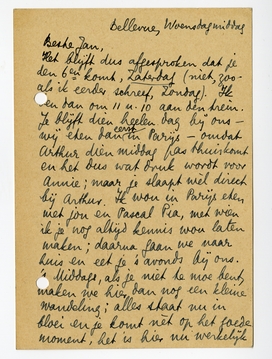 Bellevue, Woensdagmiddag
Beste Jan,
Het blijft dus afgesproken dat je
den 6en komt, Zaterdag (niet, zoo-
als ik eerder schreef, Zondag). Ik
ben dan om 11 u. 10 aan den trein.
Je blijft dien heelen dag bij ons –
wij eten dan eerst in Parijs – omdat
Arthur dien middag pas thuiskomt
en het dus wat druk wordt voor
Annie; maar je slaapt wèl direct
bij Arthur. Ik wou in Parijs eten
met jou en Pascal Pia, met wien
ik je nog altijd kennis wou laten
maken; daarna gaan we naar
huis en eet je 's avonds bij ons.
's Middags, als je niet te moe bent,
maken we hier dan nog een kleine
wandeling; alles staat nu in
bloei en je komt net op het goede
moment, het is hier nu werkelijk